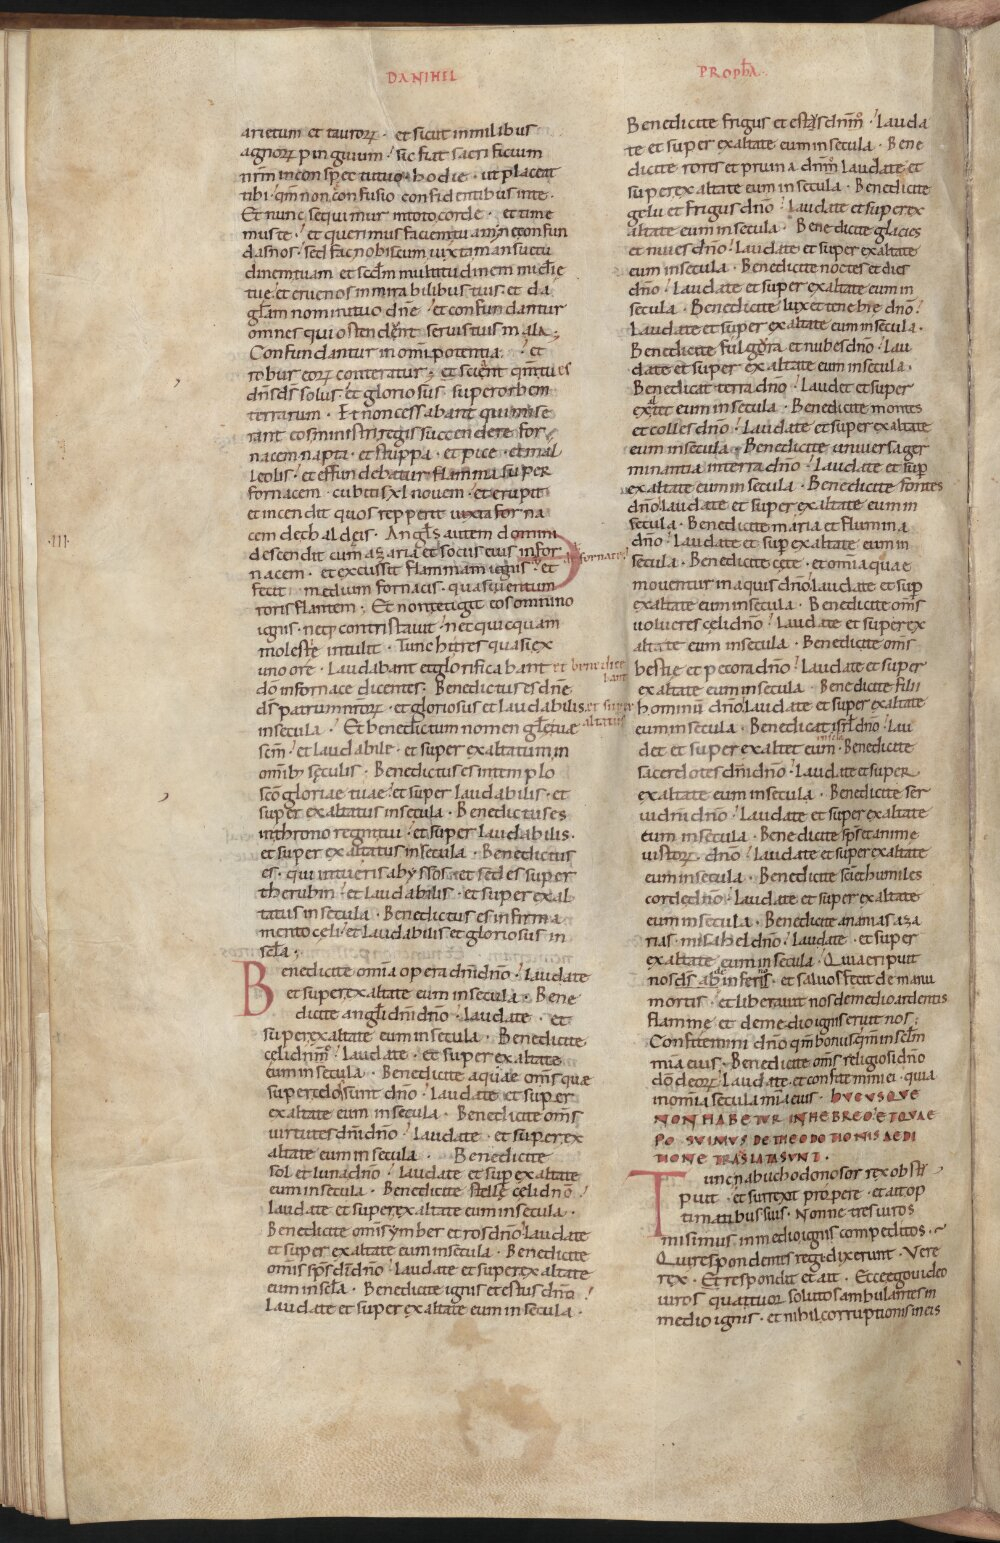 DANIHEL
arietum et taurorꝝ · et sicut in milibus
agnorꝝ pinguium · sic fiat sacrificium
nrm in conspectu tuo hodie · ut placeat
tibi · qm̄ non ē confusio confidentibus in te ·
Et nunc sequimur in toto corde · et time
mus te · et querimus faciem tuam ne confun
das nos · sed fac nobiscum iuxta mansuetu
dinem tuam et scdm multitudinem mīe
tue · et erue nos in mirabilibus tuis · et da
glam nomini tuo dne · et confundantur
omnes qui ostendent seruis tuis mala ·
Confundantur in omi potentia · et
robur eorꝝ conteratur · et scient qm̄ tu es
dns ds solus · et gloriosus super orbem
terrarum · Et non cessabant qui mise
rant eos ministri regis succendere for
nacem napta · et stuppa · et pice · et mal
leolis · et effundebatur flamma super
fornacem · cubitis xl nouem · et erupit
et incendit quos repperit iuxta forna
cem de chaldeis · Angls autem domini
descendit cum azaria et sociis eius in for
nacem · et excussit flammam ignis · et de fornace
fecit medium fornacis · quasi uentum
roris flantem · Et non tetigit eos omnino
ignis · neq; contristauit · nec quicquam
molestie intulit · Tunc hi tres quasi ex
uno ore · Laudabant et glorificabant et benedice bant
dō in fornace dicentes · Benedictus es dne
ds patrum nrorꝝ · et gloriosus et laudabilis et super altatus
in secula · Et benedictum nomen glę tuae
scm · et laudabile · et super exaltatum in
omib; sęculis · Benedictus es in templo
scō gloriae tuae · et super laudabilis · et
super exaltatus in secula · Benedictus es
in throno regni tui · et super laudabilis ·
et super exaltatus in secula · Benedictus
es · qui intueris abyssos · et sedes super
cherubin · et laudabilis · et super exal
tatus in secula · Benedictus es in firma
mento celi · et laudabilis et gloriosus in
scla ·
Benedicite omia opera dni dno · Laudate
et super exaltate eum in secula · Bene
dicite angli dni dno · laudate · et
super exaltate eum in secula · Benedicite
celi dnm · Laudate · et super exaltate
eum in secula · Benedicite aquae oms quę
super cęlos sunt dno · Laudate et super
exaltate eum in secula · Benedicite oms
uirtutes dni dno · laudate · et super ex
altate eum in secula · Benedicite
sol et luna dno · laudate et sup exaltate
eum in secula · Benedicite stelle celi dno ·
laudate et super exaltate eum in secula ·
Benedicite omis ymber et ros dno laudate
et super exaltate eum in secula · Benedicite
omis sps di dno · laudate et super exaltate
eum in scla · Benedicite ignis et estus dno ·
Laudate et super exaltate eum in secula ·
·III·
PROPhA
Benedicite frigus et estas dnm · lauda
te et super exaltate eum in secula · Bene
dicite rores et pruina dnm laudate et
super exaltate eum in secula · Benedicite
gelu et frigus dno · laudate et super ex
altate eum in secula · Benedicite glacies
et niues dno · laudate et super exaltate
eum in secula · Benedicite noctes et dies
dno · laudate et super exaltate eum in
secula · Benedicite lux et tenebre dno ·
Laudate et super exaltate eum in secula ·
Benedicite fulgora et nubes dno · lau
date et super exaltate eum in secula ·
Benedicat terra dno · laudet et super
extet eum in secula · Benedicite montes
et colles dno · laudate et super exaltate
eum in secula · Benedicite uniuersa ger
minantia in terra dno · laudate et sup
exaltate eum in secula · Benedicite fontes
dno laudate et super exaltate eum in
secula · Benedicite maria et flumina
dno · laudate et sup exaltate eum in
secula · Benedicite cęte · et omia quae
mouentur in aquis dno laudate et sup
exaltate eum in secula · Benedicite oms
uolucres cęli dno · laudate et super ex
altate eum in secula · Benedicite oms
bestie et pecora dno · laudate et super
exaltate eum in secula · Benedicite filii
hominū dno laudate et super exaltate
eum in secula · Benedicat isrl dno · lau
det et super exaltet eum in scla · Benedicite
sacerdotes dni dno · laudate et super
exaltate eum in secula · Benedicite ser
ui dni dno · laudate et super exaltate
eum in secula · Benedicite sps et anime
iustorꝝ dno · laudate et super exaltate
eum in secula · Benedicite sci et humiles
corde dno · laudate et super exaltate
eum in secula · Benedicite ananias aza
rias · misahel dno · laudate · et super
exaltate eum in secula · Quia eripuit
nos ds ab inferis · et saluos fecit de manu
mortis · et liberauit nos de medio ardentis
flamme et de medio ignis eruit nos ·
Confitemini dno qm bonus qm in sclm
mia eius · Benedicite oms religiosi dno
dō deorꝝ laudate et confitemini ei · quia
in omia secula mia eius · hUCUSQUE
NON HABETUR IN HEBREO · ET QUAE
POSUIMUS DE THEODOTIONIS AEDI
TIONE TRASLATA SUNT ·
Tunc nabuchodonosor rex obstu
puit · et surrexit propere · et ait op
timatibus suis · Nonne tres uiros
misimus in medio ignis compeditos ·
Qui respondentes regi dixerunt · Vere
rex · Et respondit et ait · Ecce ego uideo
uiros quattuor solutos ambulantes in
medio ignis · et nihil corruptionis in eis